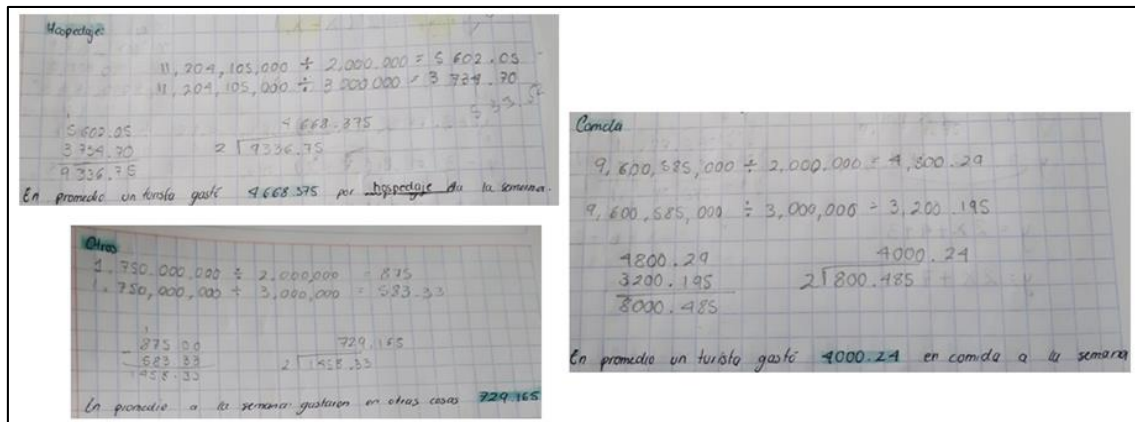 Hospedaje:
11,204,105,000 ÷ 2,000.000 = 5 602.05
11,204,105,000 ÷ 3 000 000 = 3 734.70
5 602.05
3 734.70
9 336.75
4 668.375
2 9336.75
En promedio un turista gastó 4 668.375 por hospedaje a la semana.
Otros
1.750.000.000 ÷ 2.000,000 = 875
1.750,000,000 ÷ 3,000,000 = 583.33
875.00
583.33
1458.33
729.165
2 1458.33
En promedio a la semana gastaron en otras cosas 729.165
Comida
9,600,585,000 ÷ 2,000.000 = 4,800.29
9,600,585,000 ÷ 3,000,000 = 3,200.195
4800.29
3200.195
8000.485
4000.24
2 800.485
En promedio un turista gastó 4000.24 en comida a la semana